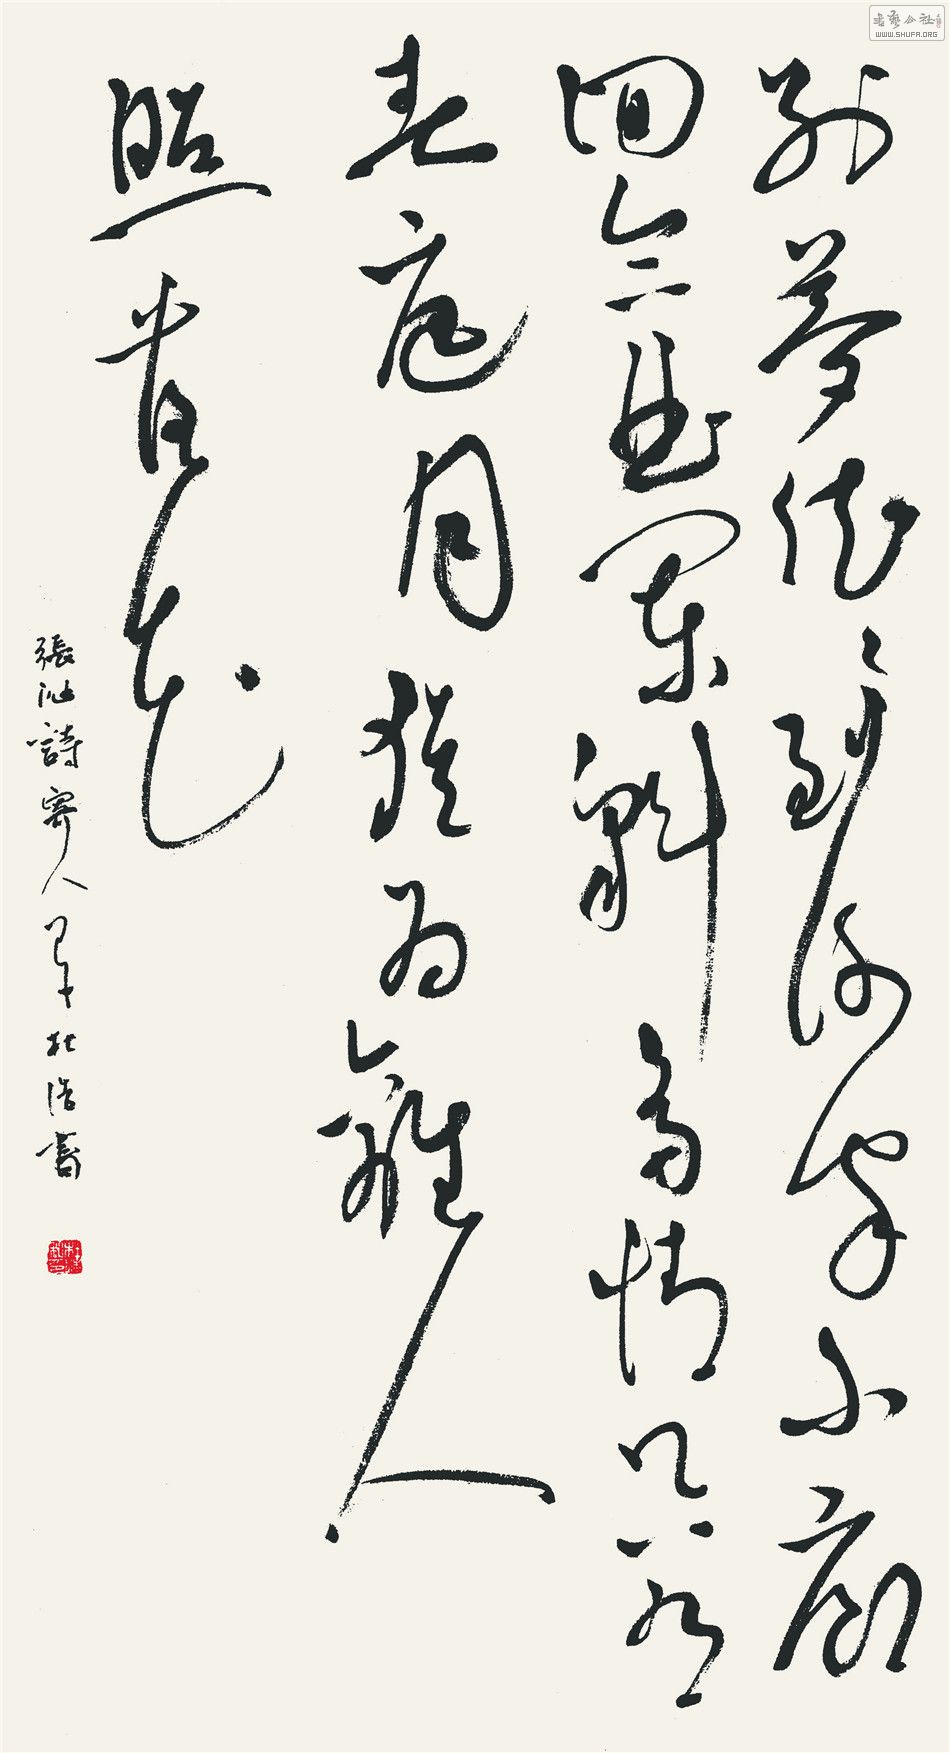 別夢依依到謝家小廊
回合曲闌斜多情只有
春庭月猶為離人
照落花
張泌詩寄人 杜浩書
書藝公社
WWW.SHUFA.ORG